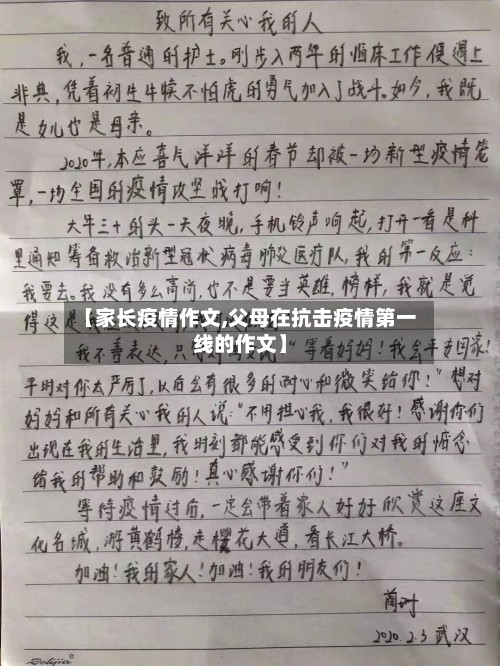 致所有关心我的人
我,一名普通的护士。刚步入两年的临床工作便遇上
非典,凭着初生牛犊不怕虎的勇气加入了战斗。如今,我既
是女儿也是母亲。
2020年,本应喜气洋洋的春节却被一场新型疫情笼
罩,一场全国的疫情攻坚战打响!
大年三十的头一天夜晚,手机铃声响起,打开一看是科
里通知筹备救治新型冠状病毒肺炎医疗队,我的第一反应:
我要去。我没有多么高尚,也不是要当英雄,榜样,我就是觉
得这是
【家长疫情作文,父母在抗击疫情第一
线的作文】
我不善表达,只 "等着妈妈!我会平安回家!
平时对你太严厉了,以后会有很多的耐心和微笑给你!"想对
妈妈和所有关心我的人说:"不用担心我,我很好!感谢你们
出现在我的生活里,我时刻都能感受到你们对我的惦念
给我的帮助和鼓励!真心感谢你们!"
等待疫情过后,一定会带着家人好好欣赏这座文
化名城,游黄鹤楼,走樱花大道,看长江大桥。
加油!我的家人!加油!我的朋友们!
2020.2.3 武汉